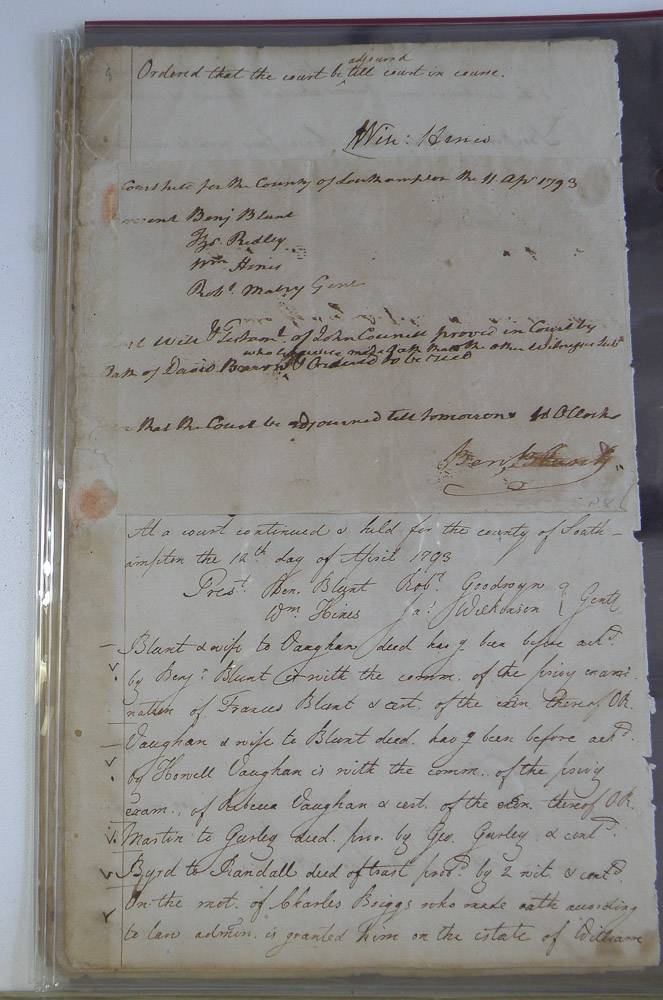 adjourned
Ordered that the court be till court in course.
Will: Hines
Court held for the County of Southampton the 11 Apr 1793
Present Benj Blunt
Ths. Ridley
Wm Hines
Robt. Mabry Gent
Will & Testamt. of John Council proved in Court by
who likewise made oath that the other Witnesses Subd
oath of David Barrow & Ordered to be recd
that the Court be adjourned till tomorrow OClock
Benj Blunt
At a court continued & held for the county of South-
ampton the 12th day of April 1793
Prest. Ben. Blunt Robt. Goodwyn
Wm. Hines Jas. Wilkinson Gentl
Blunt & wife to Vaughan deed havg been before ackd.
by Benj: Blunt is with the comm. of the privy exami-
nation of Frances Blunt & cert. of the exn. thereof OR.
Vaughan & wife to Blunt deed. havg been before ackd.
by Howell Vaughan is with the comm. of the privy
exam. of Rebecca Vaughan & cert. of the exn. thereof OR.
Martin to Gurley deed. prov. by Geo. Gurley & contd.
Byrd to Randall deed of trust provd. by 2 wit. & contd.
On the mot. of Charles Briggs who made oath according
to law admin. is granted him on the estate of William